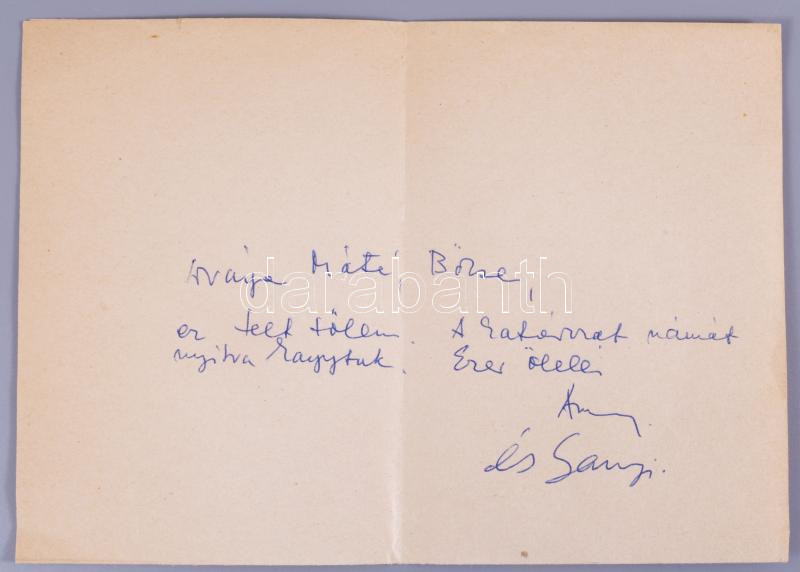 Drága Máté, Böbe,
ez telt tőlem. A határozat számát
nyitva hagytuk. Ezer ölelés
és Sanyi.
darabanth